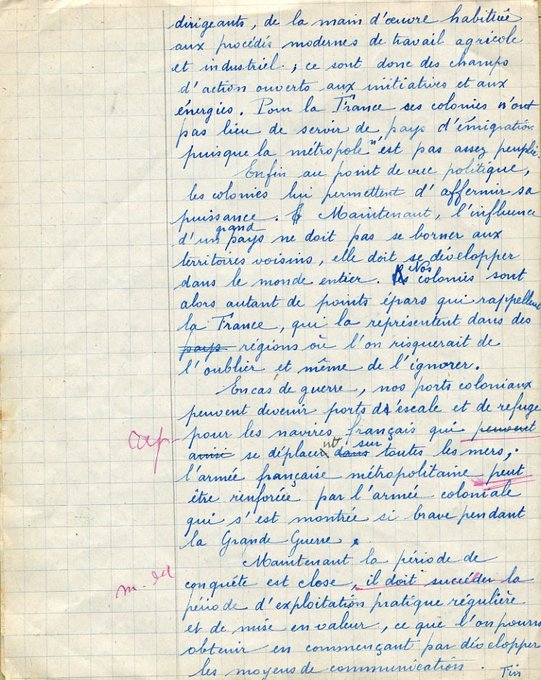 dirigeants, de la main d'œuvre habituée
aux procédés modernes de travail agricole
et industriel ; ce sont donc des champs
d'action ouverts aux initiatives et aux
énergies. Pour la France ses colonies n'ont
pas lieu de servir de pays d'émigration
puisque la métropole n'est pas assez peuplée
Enfin au point de vue politique,
les colonies lui permettent d'affermir sa
puissance. Maintenant, l'influence
d'un grand pays ne doit pas se borner aux
territoires voisins, elle doit se développer
dans le monde entier. Nos colonies sont
alors autant de points épars qui rappellent
la France, qui la représentent dans des
pays régions où l'on risquerait de
l'oublier et même de l'ignorer.
En cas de guerre, nos ports coloniaux
peuvent devenir ports d'escale et de refuge
pour les navires français qui peuvent
rep
ainsi se déplacent dans sur toutes les mers ;
l'armée française métropolitaine peut
être renforcée par l'armée coloniale
qui s'est montrée si brave pendant
la Grande Guerre.
Maintenant la période de
m. dd
conquête est close, il doit succéder la
période d'exploitation pratique régulière
et de mise en valeur, ce que l'on pourra
obtenir en commençant par développer
les moyens de communication.